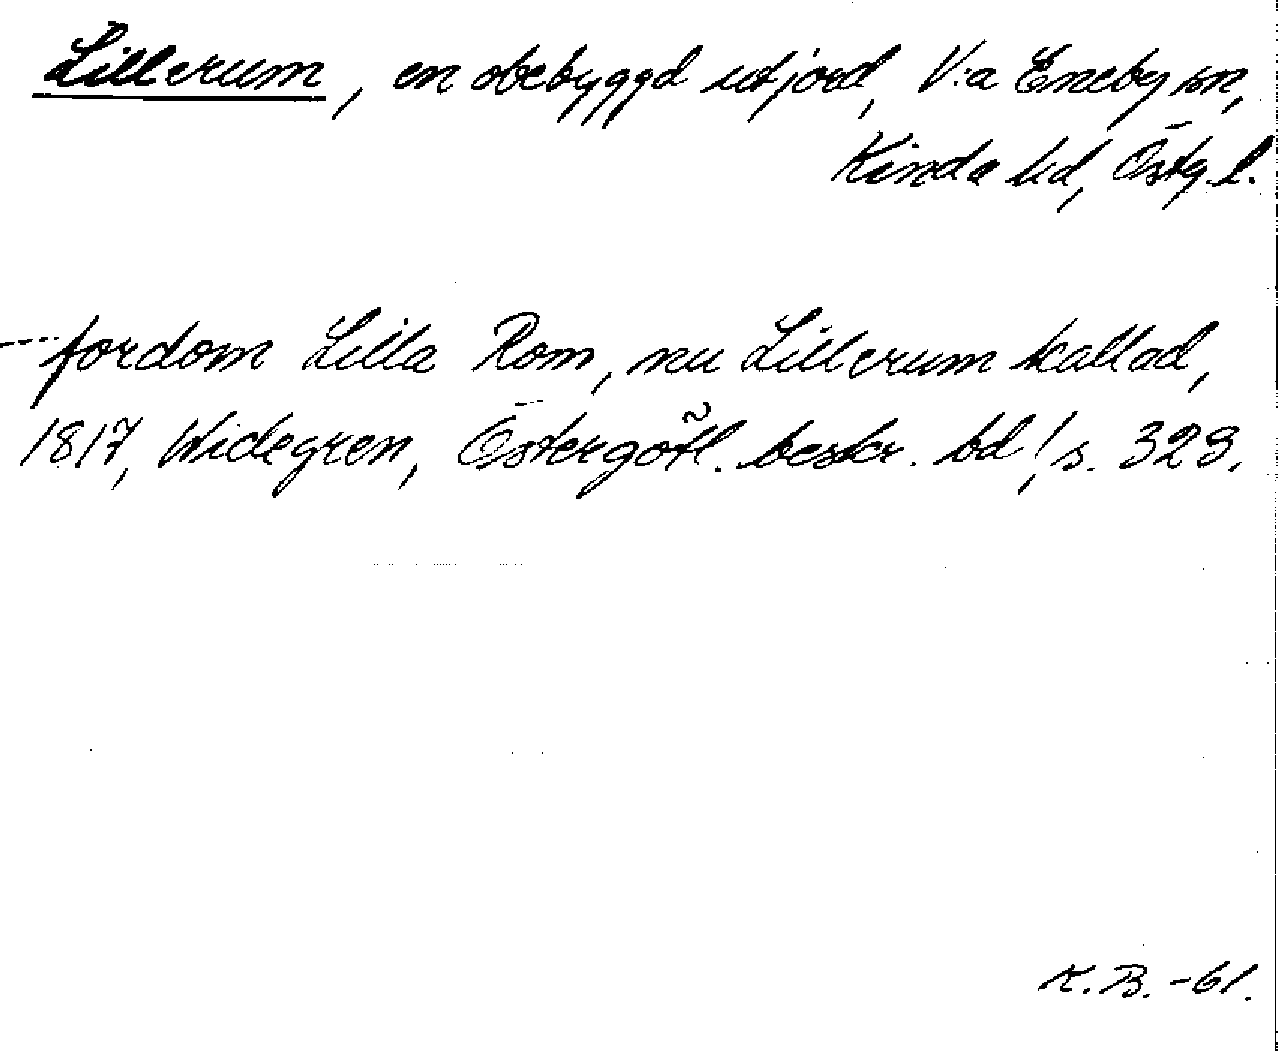 Lillerum, en obebyggd utjord, V:a Eneby sn,
Kinda hd, Östg.l.
--- fordom Lilla Rom, nu Lillerum kallad,
1817, Widegren, Östergötl. beskr. bd 1, s. 329.
K.B. -61.